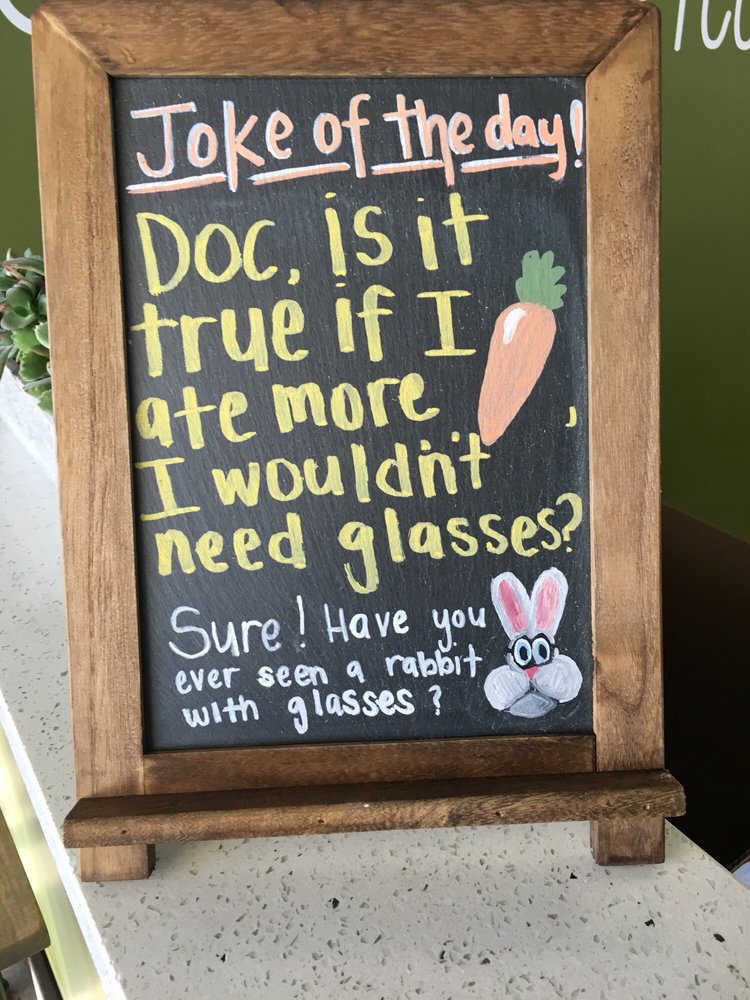 Joke of the day!
Doc, is it
true if I
ate more ,
I wouldn't
need glasses?
Sure! Have you
ever seen a rabbit
with glasses?